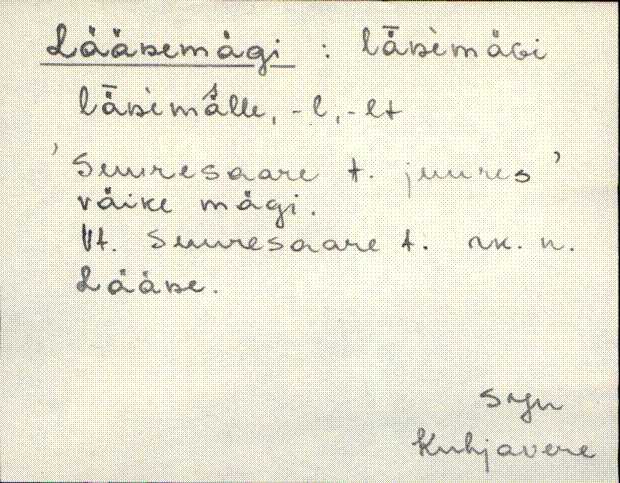 Lääsemägi : lǟsèmäGi
lǟsèmä̀lle, -l, -lt
'Suuresaare t. juures'
väike mägi.
Vt. Suuresaare t. rk. n.
Lääse.
SJn
Kuhjavere